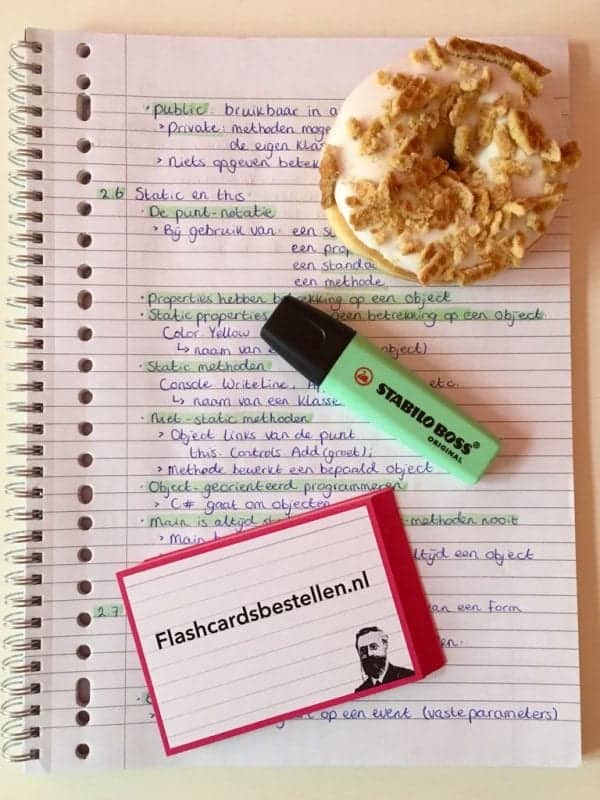 · public: bruikbaar in a
> Private: methoden moge
de eigen Klas
> Niets opgeven betek
2.6 Static en this
· De punt-notatie
> Bij gebruik van: een
een prop
een standa
een methode
· Properties hebben betrekking op een object
· Static properties geen betrekking op een object
Color Yellow
↳ naam van object)
· Static methoden
Console WriteLine, etc.
↳ naam van een Klasse
· Niet-static methoden
> Object links van de punt
this. Controls Add(groet);
> Methode bewerkt een bepaald object
· Object-georiënteerd programmeren
> C# gaat om objecten
· Main is altijd methoden nooit
> Main altijd een object
2.7 van een Form
op een event (vaste parameters)
STABILO BOSS
ORIGINAL
Flashcardsbestellen.nl